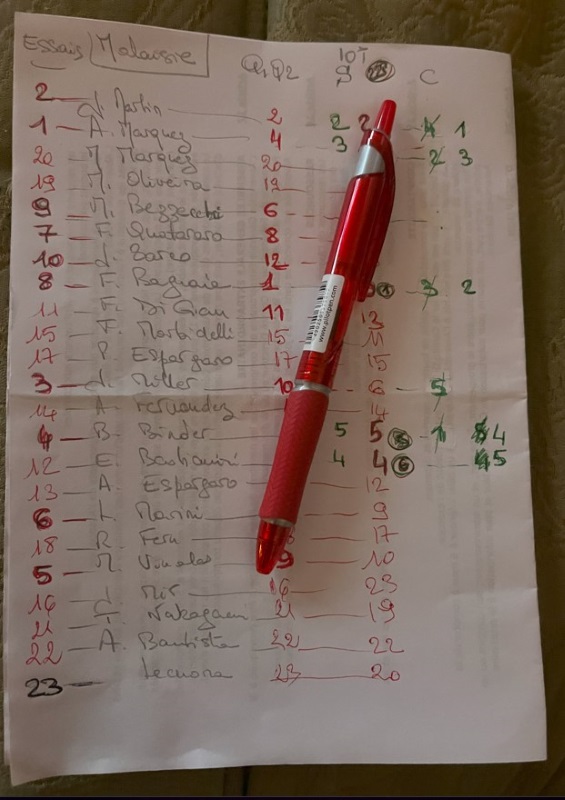 Essais Malaisie Q1 Q2 10T S C
2 J. Martin 2 2
1 A. Marquez 4 3 1
20 M. Marquez 20 2 3
19 M. Oliveira
9 M. Bezzecchi 6
7 F. Quatararo 8
10 J. Zarco 12
8 F. Bagnaia 1 3 2
11 F. Di Gian 11 13
15 F. Morbidelli 15 11
17 P. Espargaro 17 15
3 J. Miller 10 6 5
14 A. Fernandez 14
4 B. Binder 5 5 1 4
12 E. Bastianini 4 4 6 5
13 A. Espargaro 12
6 L. Marini 9
18 R. Fern 17
5 M. Vinales 9 10
16 J. Mir 16 23
21 T. Nakagam 21 19
22 A. Bautista 22 22
23 Lecuona 23 20
www.pilotpen.com